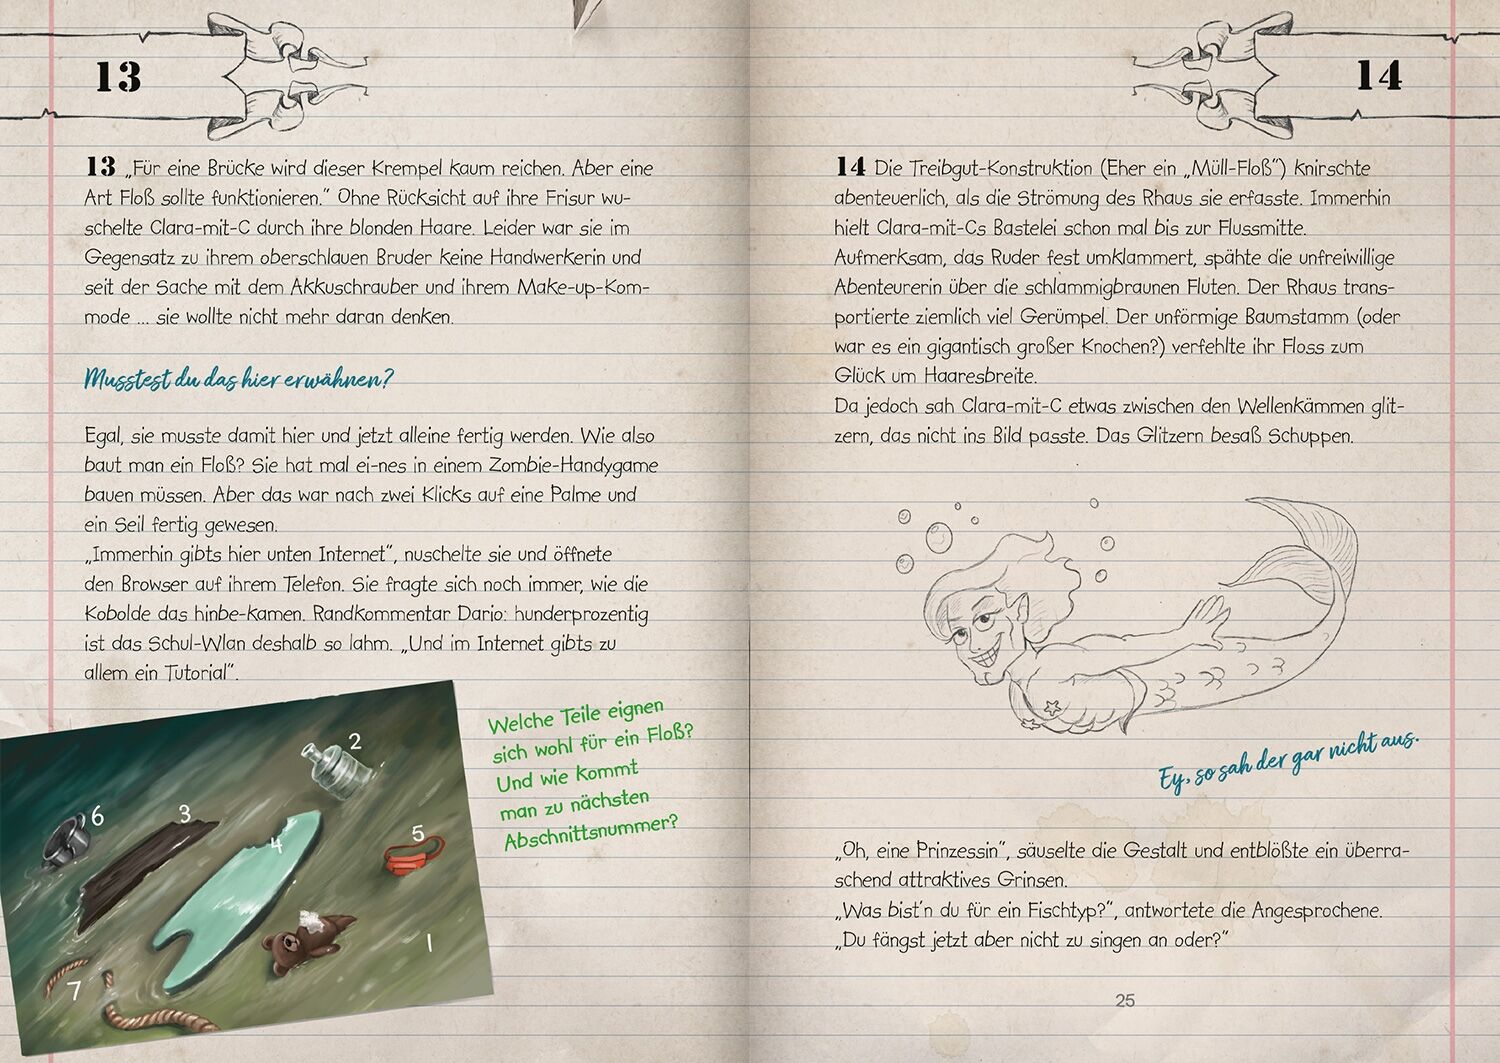 13
13 „Für eine Brücke wird dieser Krempel kaum reichen. Aber eine
Art Floß sollte funktionieren.“ Ohne Rücksicht auf ihre Frisur wu-
schelte Clara-mit-C durch ihre blonden Haare. Leider war sie im
Gegensatz zu ihrem oberschlauen Bruder keine Handwerkerin und
seit der Sache mit dem Akkuschrauber und ihrem Make-up-Kom-
mode ... sie wollte nicht mehr daran denken.
Musstest du das hier erwähnen?
Egal, sie musste damit hier und jetzt alleine fertig werden. Wie also
baut man ein Floß? Sie hat mal ei-nes in einem Zombie-Handygame
bauen müssen. Aber das war nach zwei Klicks auf eine Palme und
ein Seil fertig gewesen.
„Immerhin gibts hier unten Internet“, nuschelte sie und öffnete
den Browser auf ihrem Telefon. Sie fragte sich noch immer, wie die
Kobolde das hinbe-kamen. Randkommentar Dario: hunderprozentig
ist das Schul-Wlan deshalb so lahm. „Und im Internet gibts zu
allem ein Tutorial“.
Welche Teile eignen
sich wohl für ein Floß?
Und wie kommt
man zu nächsten
Abschnittsnummer?
2
6
3
4
5
1
7
14
14 Die Treibgut-Konstruktion (Eher ein „Müll-Floß“) knirschte
abenteuerlich, als die Strömung des Rhaus sie erfasste. Immerhin
hielt Clara-mit-Cs Bastelei schon mal bis zur Flussmitte.
Aufmerksam, das Ruder fest umklammert, spähte die unfreiwillige
Abenteurerin über die schlammigbraunen Fluten. Der Rhaus trans-
portierte ziemlich viel Gerümpel. Der unförmige Baumstamm (oder
war es ein gigantisch großer Knochen?) verfehlte ihr Floss zum
Glück um Haaresbreite.
Da jedoch sah Clara-mit-C etwas zwischen den Wellenkämmen glit-
zern, das nicht ins Bild passte. Das Glitzern besaß Schuppen.
Ey, so sah der gar nicht aus.
„Oh, eine Prinzessin“, säuselte die Gestalt und entblößte ein überra-
schend attraktives Grinsen.
„Was bist’n du für ein Fischtyp?“, antwortete die Angesprochene.
„Du fängst jetzt aber nicht zu singen an oder?“
25